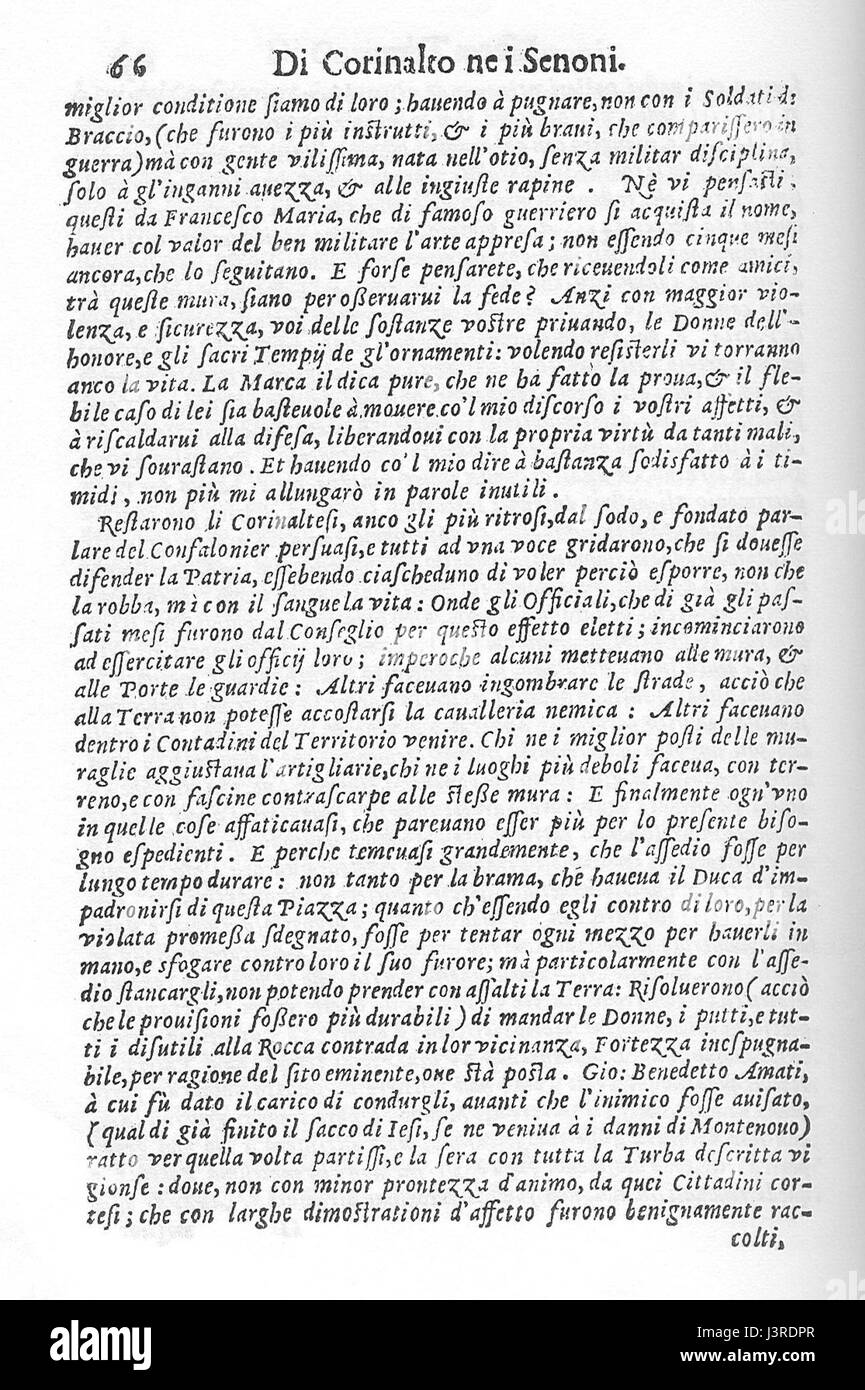 66 Di Corinalto ne i Senoni.
miglior conditione ſiamo di loro; hauendo à pugnare, non con i Soldati di
Braccio, (che furono i più inſtrutti, & i più braui, che compariſſero in
guerra) mà con gente viliſſima, nata nell'otio, ſenza militar diſciplina,
ſolo à gl'inganni auezza, & alle ingiuſte rapine. Nè vi penſaſti,
queſti da Franceſco Maria, che di famoſo guerriero ſi acquiſta il nome,
hauer col valor del ben militare l'arte appreſa; non eſſendo cinque meſi
ancora, che lo ſeguitano. E forſe penſarete, che riceuendoli come amici,
trà queſte mura, ſiano per oßeruarui la fede? Anzi con maggior vio-
lenza, e ſicurezza, voi delle ſoſtanze voſtre priuando, le Donne dell'-
honore, e gli ſacri Tempij de gl'ornamenti: volendo reſiſterli vi torranno
anco la vita. La Marca il dica pure, che ne ha fatto la proua, & il fle-
bile caſo di lei ſia baſteuole à mouere co'l mio diſcorſo i voſtri affetti, &
à riſcaldarui alla difeſa, liberandoui con la propria virtù da tanti mali,
che vi ſouraſtano. Et hauendo co'l mio dire à baſtanza ſodisfatto à i ti-
midi, non più mi allungarò in parole inutili.
Reſtarono li Corinalteſi, anco gli più ritroſi, dal ſodo, e fondato par-
lare del Confalonier perſuaſi, e tutti ad vna voce gridarono, che ſi doueſſe
difender la Patria, eſſebendo ciaſcheduno di voler perciò eſporre, non che
la robba, mì con il ſangue la vita: Onde gli Officiali, che di già gli paſ-
ſati meſi furono dal Conſeglio per queſto effetto eletti; incominciarono
ad eſſercitare gli officij loro; imperoche alcuni metteuano alle mura, &
alle Porte le guardie: Altri faceuano ingombrare le ſtrade, acciò che
alla Terra non poteſſe accoſtarſi la caualleria nemica: Altri faceuano
dentro i Contadini del Territorio venire. Chi ne i miglior poſti delle mu-
raglie aggiuſtaua l'artigliarie, chi ne i luoghi più deboli faceua, con ter-
reno, e con faſcine contraſcarpe alle ſteße mura: E finalmente ogn'vno
in quelle coſe affaticauaſi, che pareuano eſſer più per lo preſente biſo-
gno eſpedienti. E perche temeuaſi grandemente, che l'aſſedio foſſe per
lungo tempo durare: non tanto per la brama, che haueua il Duca d'im-
padronirſi di queſta Piazza; quanto ch'eſſendo egli contro di loro, per la
violata promeßa ſdegnato, foſſe per tentar ogni mezzo per hauerli in
mano, e sfogare contro loro il ſuo furore; mà particolarmente con l'aſſe-
dio ſtancargli, non potendo prender con aſſalti la Terra: Riſoluerono (acciò
che le prouiſioni foßero più durabili) di mandar le Donne, i putti, e tut-
ti i diſutili alla Rocca contrada in lor vicinanza, Fortezza ineſpugna-
bile, per ragione del ſito eminente, oue ſtà poſta. Gio: Benedetto Amati,
à cui fù dato il carico di condurgli, auanti che l'inimico foſſe auiſato,
(qual di già finito il ſacco di Ieſi, ſe ne veniua à i danni di Montenouo)
ratto ver quella volta partiſſi, e la ſera con tutta la Turba deſcritta vi
gionſe: doue, non con minor prontezza d'animo, da quei Cittadini cor-
teſi; che con larghe dimoſtrationi d'affetto furono benignamente rac-
colti,
alamy
a
a
a
alamy
Image ID: J3RDPR
www.alamy.com